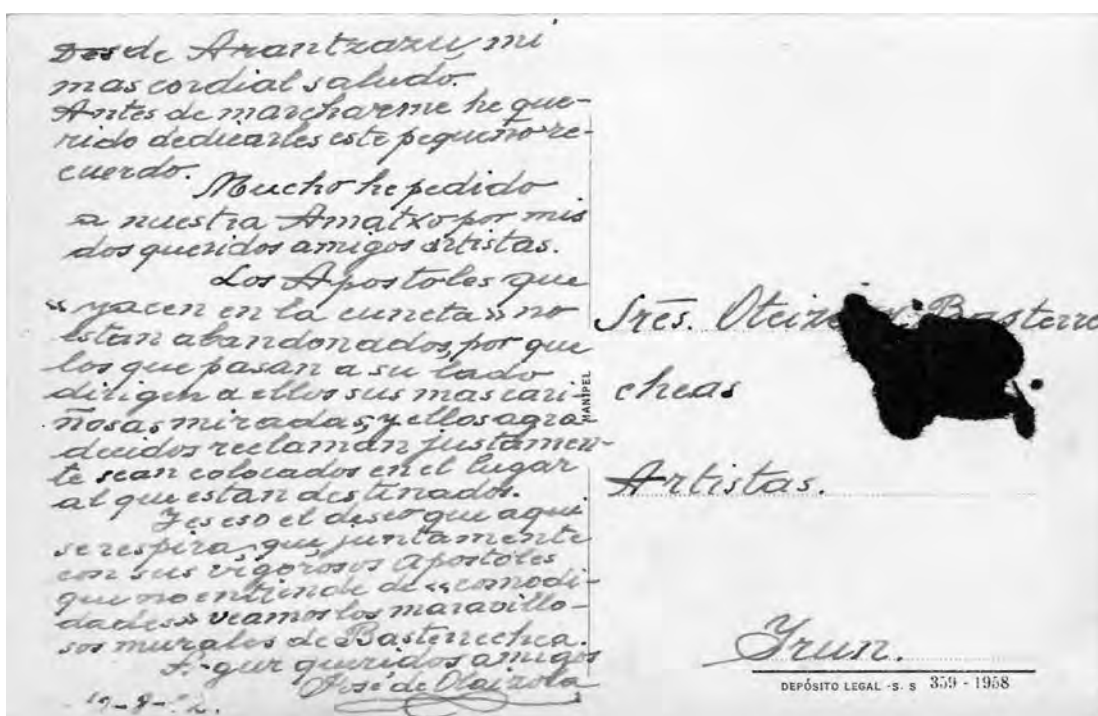 Desde Arantzazu, mi
mas cordial saludo.
Antes de marcharme he que-
rido dedicarles este pequeño re-
cuerdo.
Mucho he pedido
a nuestra Amatxo por mis
dos queridos amigos artistas.
Los Apostoles que
«yacen en la cuneta» no
estan abandonados, por que
los que pasan a su lado
dirigen a ellos sus mas cari-
ñosas miradas, y ellos agra-
decidos reclaman justamen-
te sean colocados en el lugar
al que estan destinados.
Y es eso el deseo que aqui
se respira, que juntamente
con sus vigorosos apostoles
que no entiende de «comodi-
dades» veamos los maravillo-
sos murales de Basterrechea.
A-gur queridos amigos
José de Olaizola
MANIPEL
Sres. Oteiza Basterre
cheas
Artistas.
Yrun.
DEPÓSITO LEGAL -S. S 359 - 1958